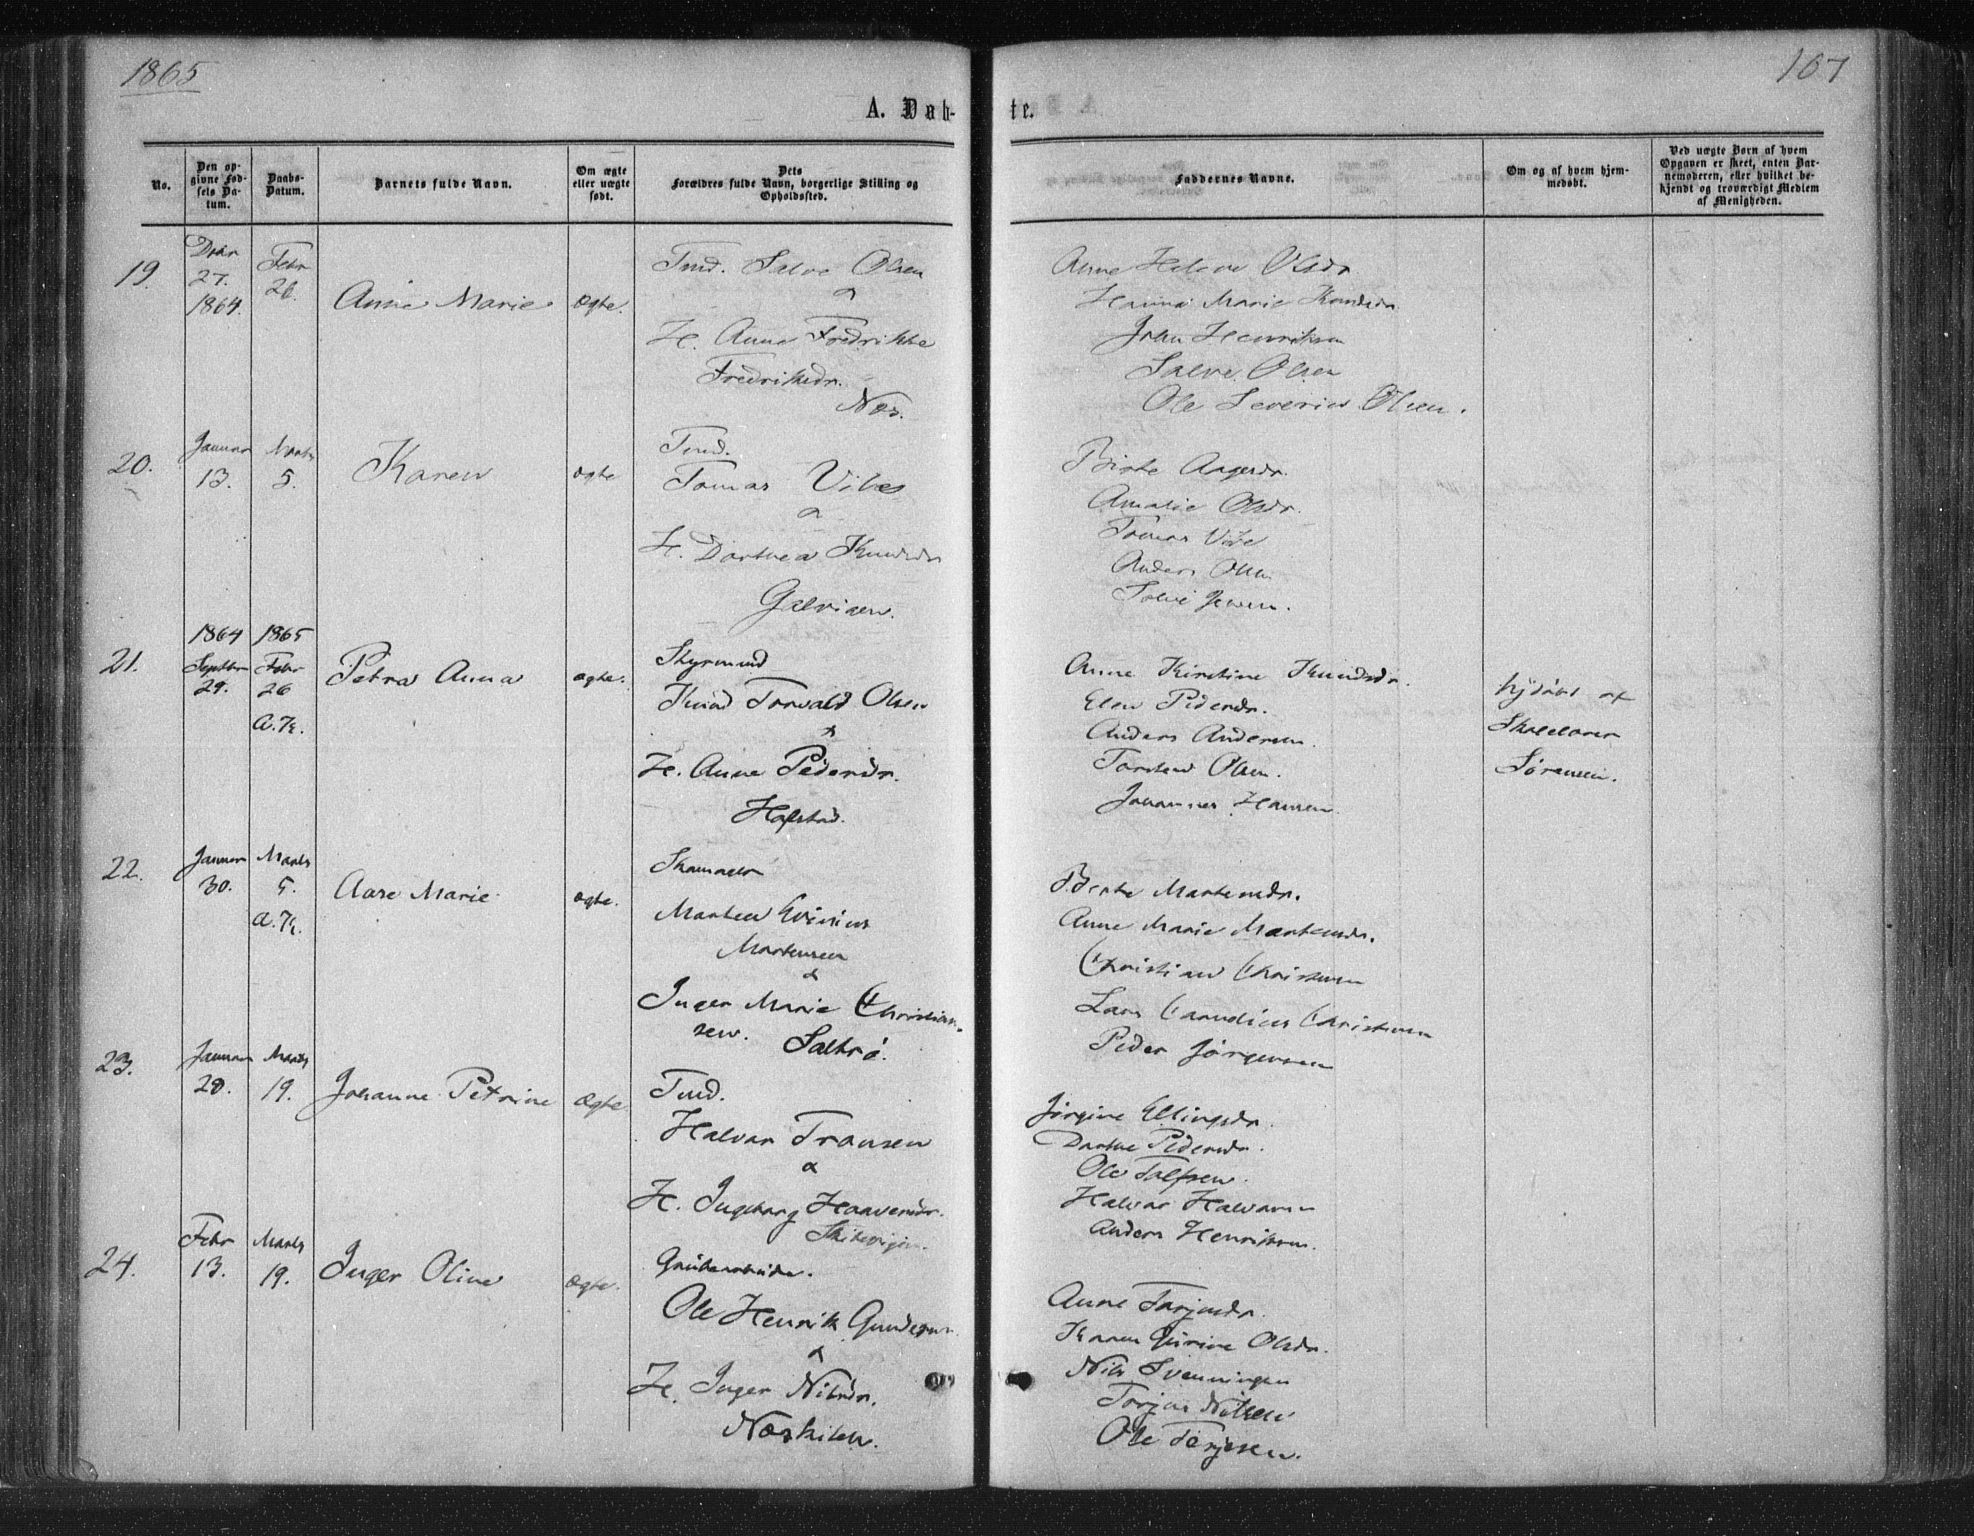 1865
107
A. Døb-
te.
No.
Den op-
givne Fød-
sels Da-
tum.
Daabs-
Datum.
Barnets fulde Navn.
Om ægte
eller uægte
født.
Dets
Forældres fulde Navn, borgerlige Stilling og
Opholdssted.
Faddernes Navne.
Om og af hvem hjem-
medøbt.
Ved uægte Børn af hvem
Opgaven er skeet, enten Bar-
nemoderen, eller hvilket be-
kjendt og troværdigt Medlem
af Menigheden.
19.
27.
1864.
Febr
26.
Anne Marie
Ægte.
Tmd. Salve Olsen
&
H. Anne Fredrikke
Fredriksdr.
Næs.
Anne Helene Olsdr
Hanna Marie Knudsdr
John Henriksen
Salve Olsen
Ole Severin Olsen.
20.
Januar
13.
Marts
5.
Karen
ægte
Tmd.
Tomas
&
H. Dorthea Knudsdr
Birte Aagesdr.
Amalie Olsdr.
Tomas
Anders Olsen
Salve Jensen.
21.
1864
Septbr
29.
1865
Febr
26
a. K.
Petra Anna
ægte.
Styrmand
Knud Torvald Olsen
&
H. Anne Pedersdr.
Hafstad.
Anne Kirstine Knudsdr.
Elen Pedersdr.
Anders Andersen.
Torsten Olsen.
Johannes Hansen
hjdøbt af
Skolelærer
Sørensen.
22.
Januar
30.
Marts
5.
a. K.
Aase Marie
ægte.
Skomager
Morten
Mortensen
&
Inger Marie Christian-
sen.
Saltrø.
Berte Mortensdr.
Anne Marie Mortensdr.
Christian Christensen
Lars Christensen
Peder Jørgensen
23.
Januar
28.
Marts
19.
Johanne Petrine
Ægte
Tmd.
Halvor Fransen
&
H. Ingeborg Haavorsdr.
Jørgine Ellingsdr.
Dorthe Pedersdr.
Ole Tolfsen.
Halvor Halvorsen
Anders Henriksen.
24.
Febr
13.
Marts
19.
Inger Oline
Ægte.
Grubearbeider.
Ole Henrik Gundersen
&
H. Inger Nilsdr.
Næskilen.
Anne Torjusdr.
Karen Gurine Olsdr.
Nils Svenningsen
Torjus Nilsen
Ole Terjesen.